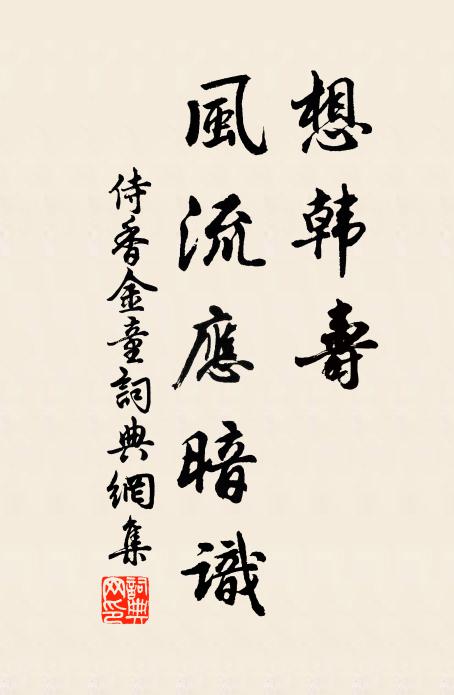 想韩壽
風流應暗識
侍香金童詞典網集
詞典网印